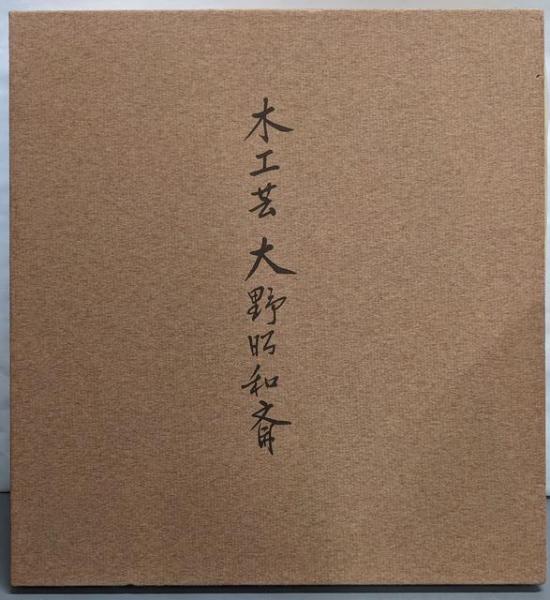 木工芸 大野昭和斎